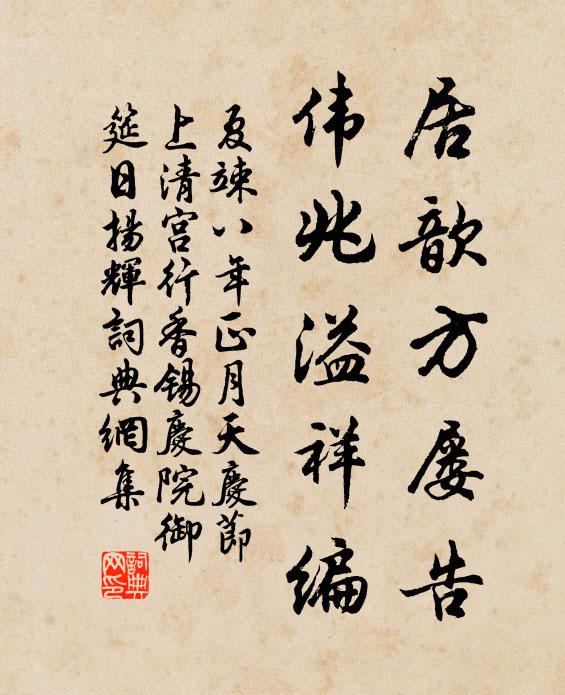 居歆方屡告
伟兆溢祥编
夏竦八年正月天慶節
上清宫行香錫慶院御
筵日揚輝詞典網集
詞典网印